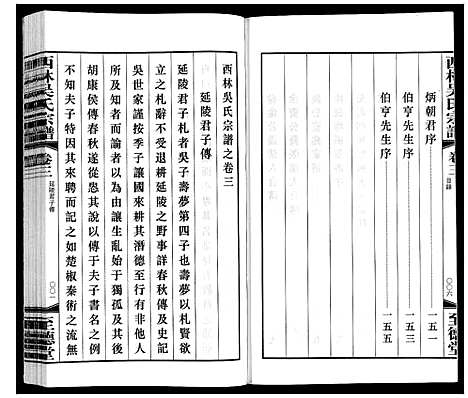 西林吳氏宗譜
卷三
目錄
〇〇六
至德堂
炳朝君序
一五一
伯亨先生序
一五三
伯亨先生序
一五五
西林吳氏宗譜之卷三
延陵君子傳
延陵君子札者吳子壽夢第四子也壽夢以札賢欲
立之札辭不受退耕延陵之野事詳春秋傳及史記
吳世家謹按季子讓國來耕其潛德至行有非耳目
所及知者而論者以為由讓生亂始于獨孤及其後
胡康侯傳春秋遂從而甚其說以傳于夫子書名之例
不知夫子特因其來聘而記之如楚椒秦術之流無
西林吳氏宗譜
卷三
延陵君子傳
〇〇一
至德堂